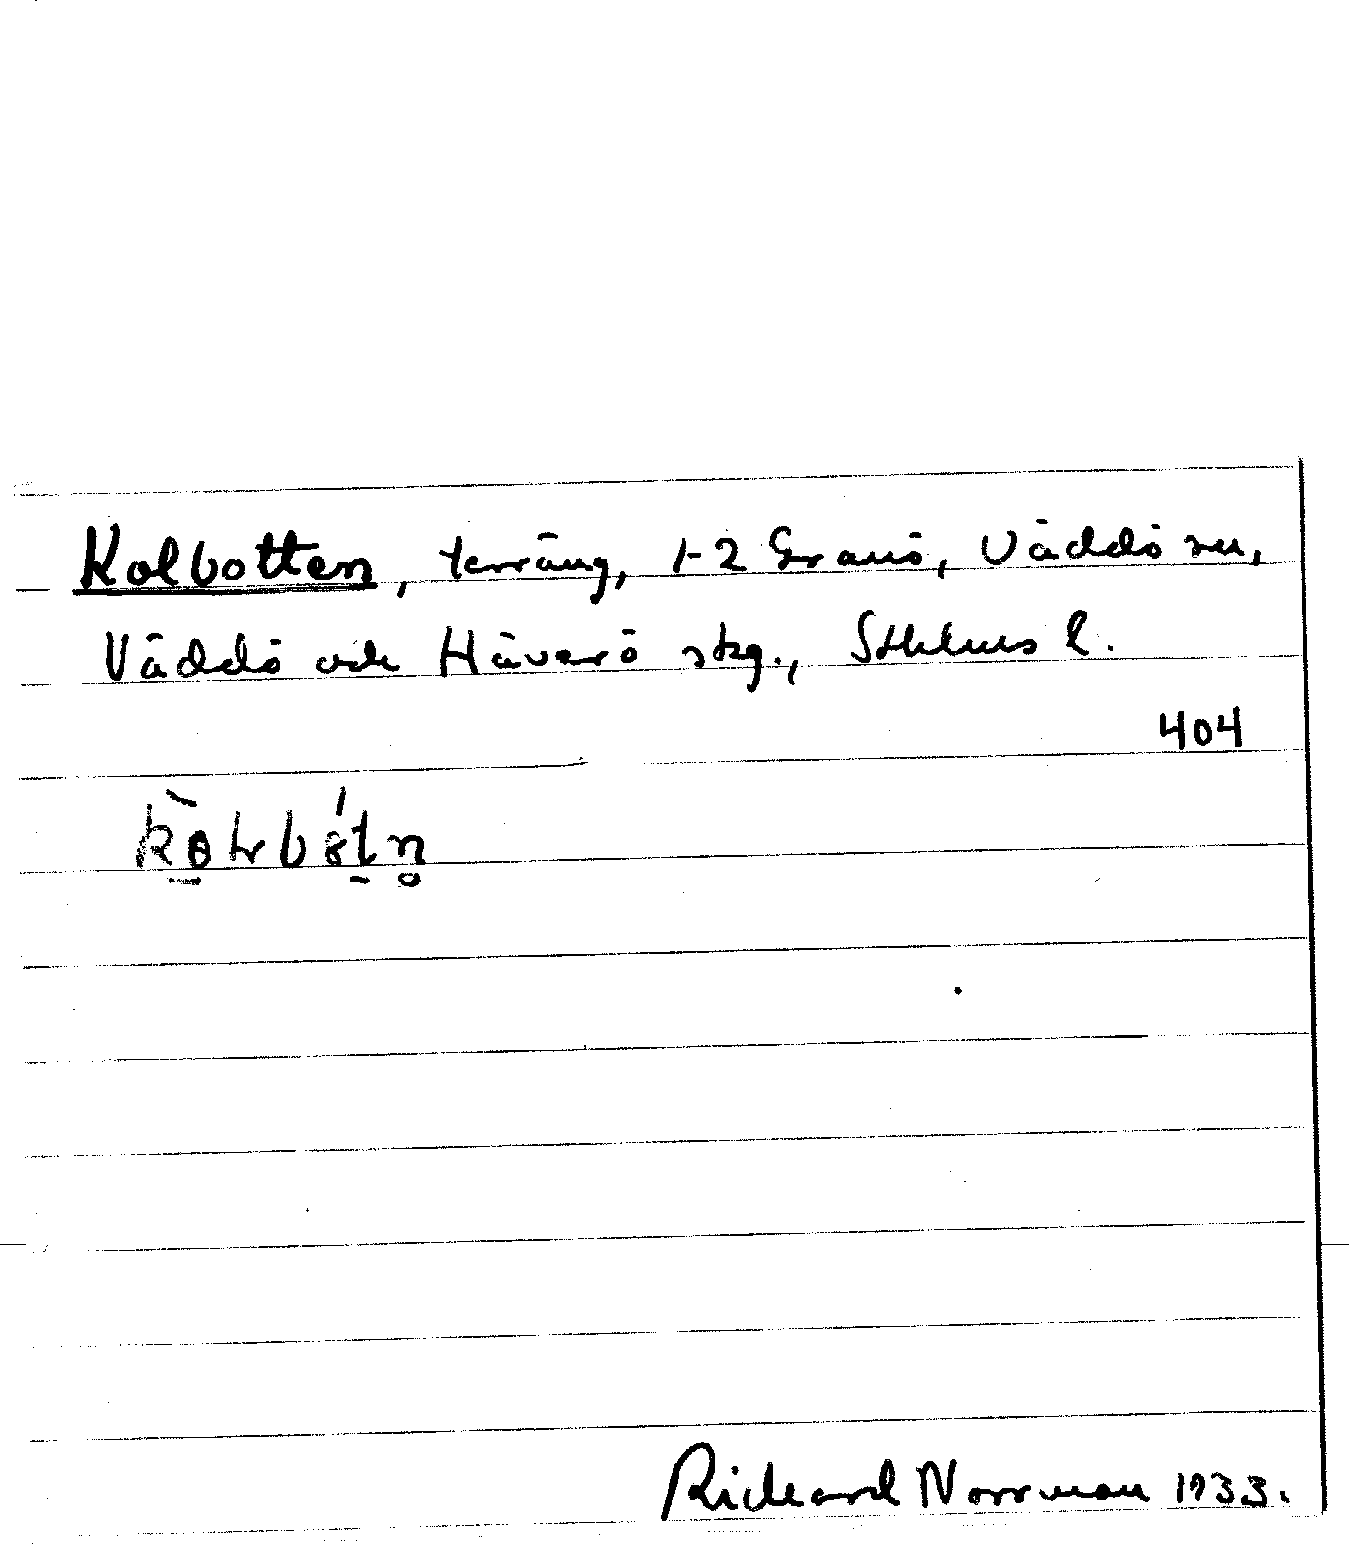 Kolbotten, terräng, 1-2 Granö, Väddö sn,
Väddö och Häverö skg., Sthlms l.
404
Rickard Norrman 1933.